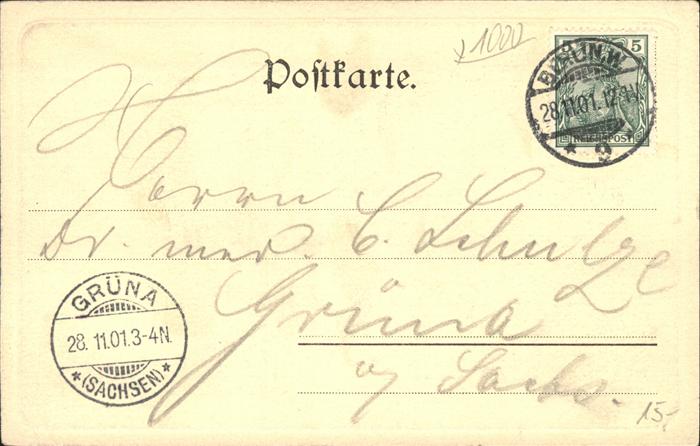 x 1000
Postkarte.
5 5
BERLIN, W.
28.11.01.12-1N.
* 9
REICHSPOST
Herrn
Dr. med. C. Schulze
Grüna
i/ Sachs.
GRÜNA
28.11.01.3-4N.
*(SACHSEN)*
15,-